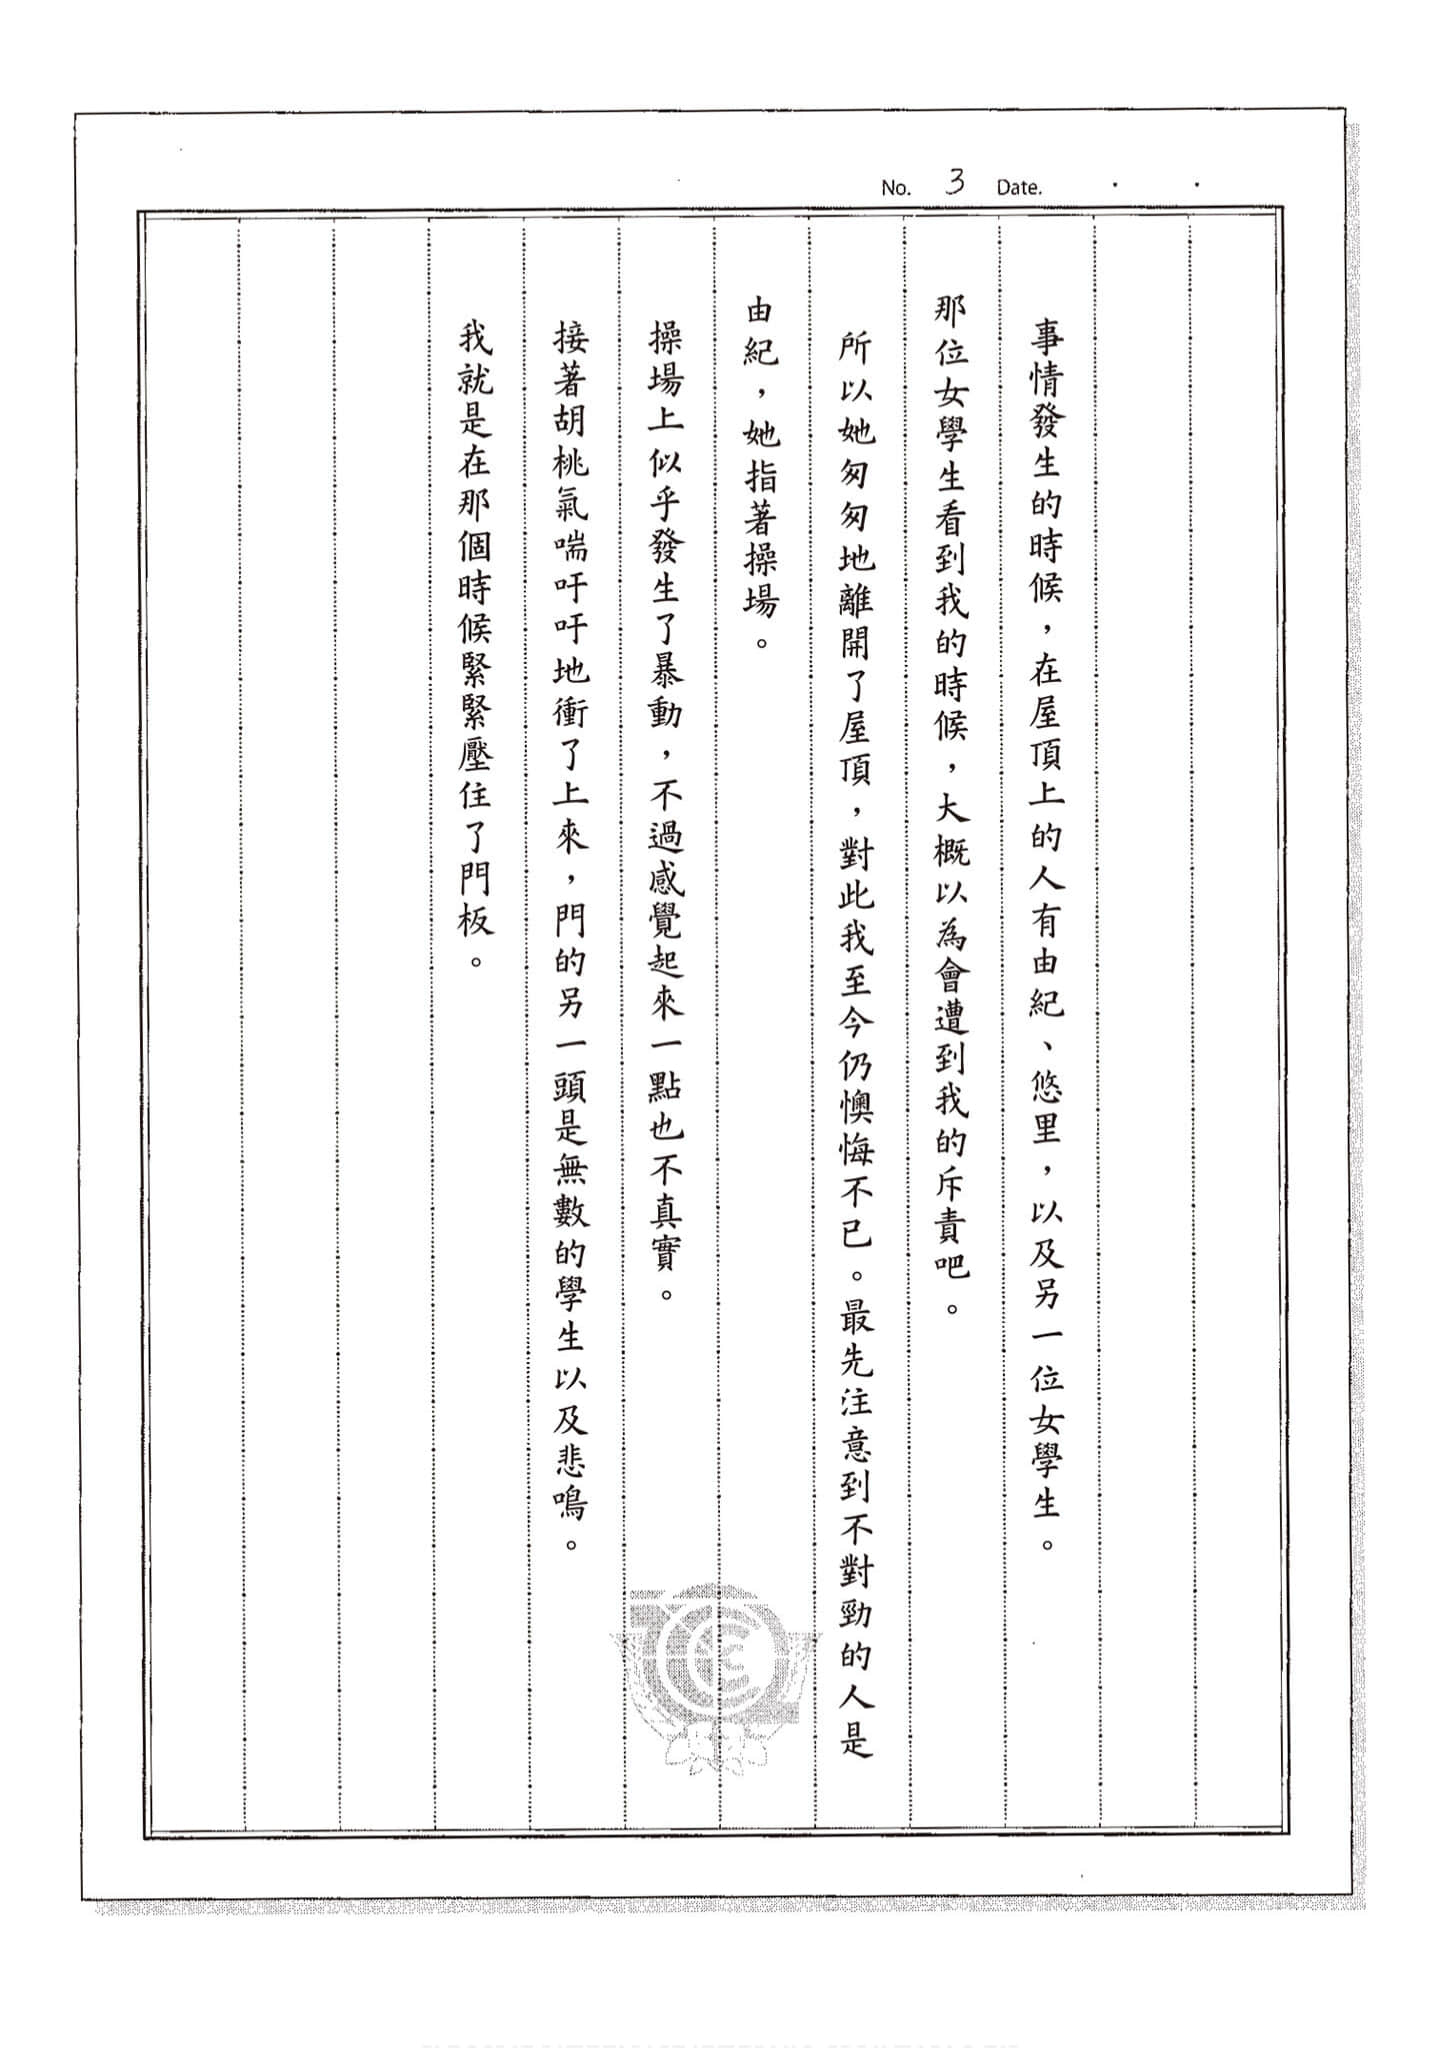 No. 3 Date. . .
事情發生的時候，在屋頂上的人有由紀、悠里，以及另一位女學生。
那位女學生看到我的時候，大概以為會遭到我的斥責吧。
所以她匆匆地離開了屋頂，對此我至今仍懊悔不已。最先注意到不對勁的人是
由紀，她指著操場。
操場上似乎發生了暴動，不過感覺起來一點也不真實。
接著胡桃氣喘吁吁地衝了上來，門的另一頭是無數的學生以及悲鳴。
我就是在那個時候緊緊壓住了門板。